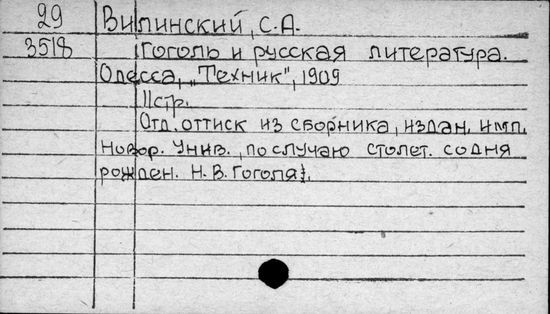 29 Вилинский, С.А.
3518 Гоголь и русская литература.
Одесса, „Техник", 1909
11стр.
Отд. оттиск из сборника, издан. имп.
Новор. Унив., по случаю столет. со дня
рожден. Н. В. Гоголя.